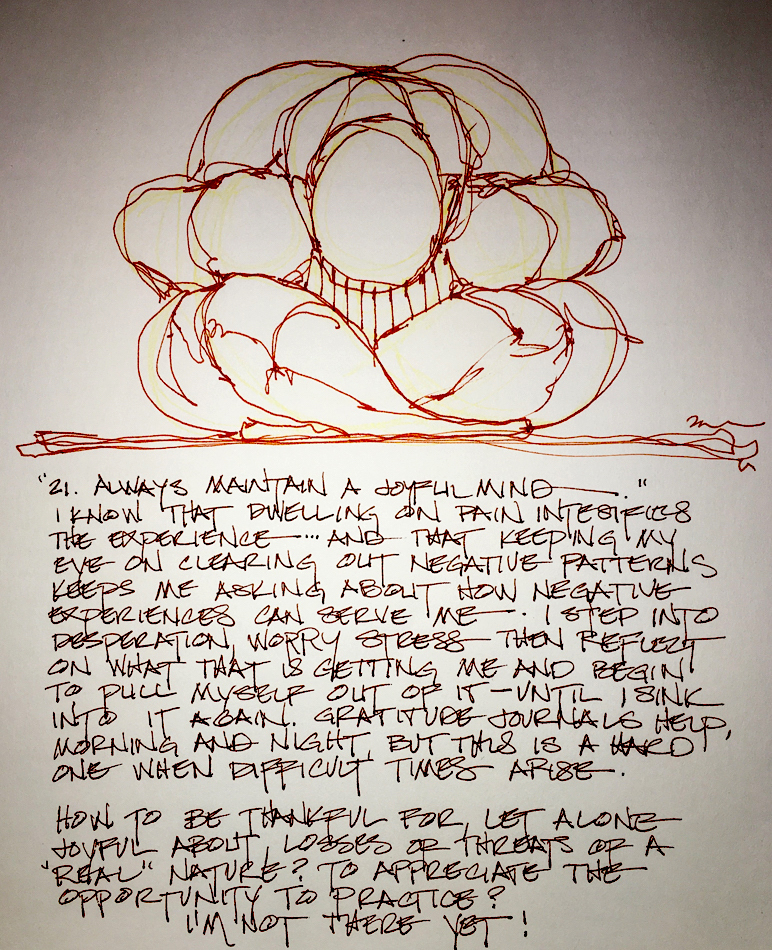 "21. ALWAYS MAINTAIN A JOYFUL MIND —— ."
I KNOW THAT DWELLING ON PAIN INTESIFIES
THE EXPERIENCE — ... AND THAT KEEPING MY
EYE ON CLEARING OUT NEGATIVE PATTERNS
KEEPS ME ASKING ABOUT HOW NEGATIVE
EXPERIENCES CAN SERVE ME — . I STEP INTO
DESPERATION, WORRY STRESS — THEN REFLECT
ON WHAT THAT IS GETTING ME AND BEGIN
TO PULL MYSELF OUT OF IT — UNTIL I SINK
INTO IT AGAIN. GRATITUDE JOURNALS HELP,
MORNING AND NIGHT, BUT THIS IS A HARD
ONE WHEN DIFFICULT TIMES ARISE — .
HOW TO BE THANKFUL FOR, LET ALONE
JOYFUL ABOUT, LOSSES OR THREATS OF A
"REAL" NATURE? TO APPRECIATE THE
OPPORTUNITY TO PRACTICE?
I'M NOT THERE YET!